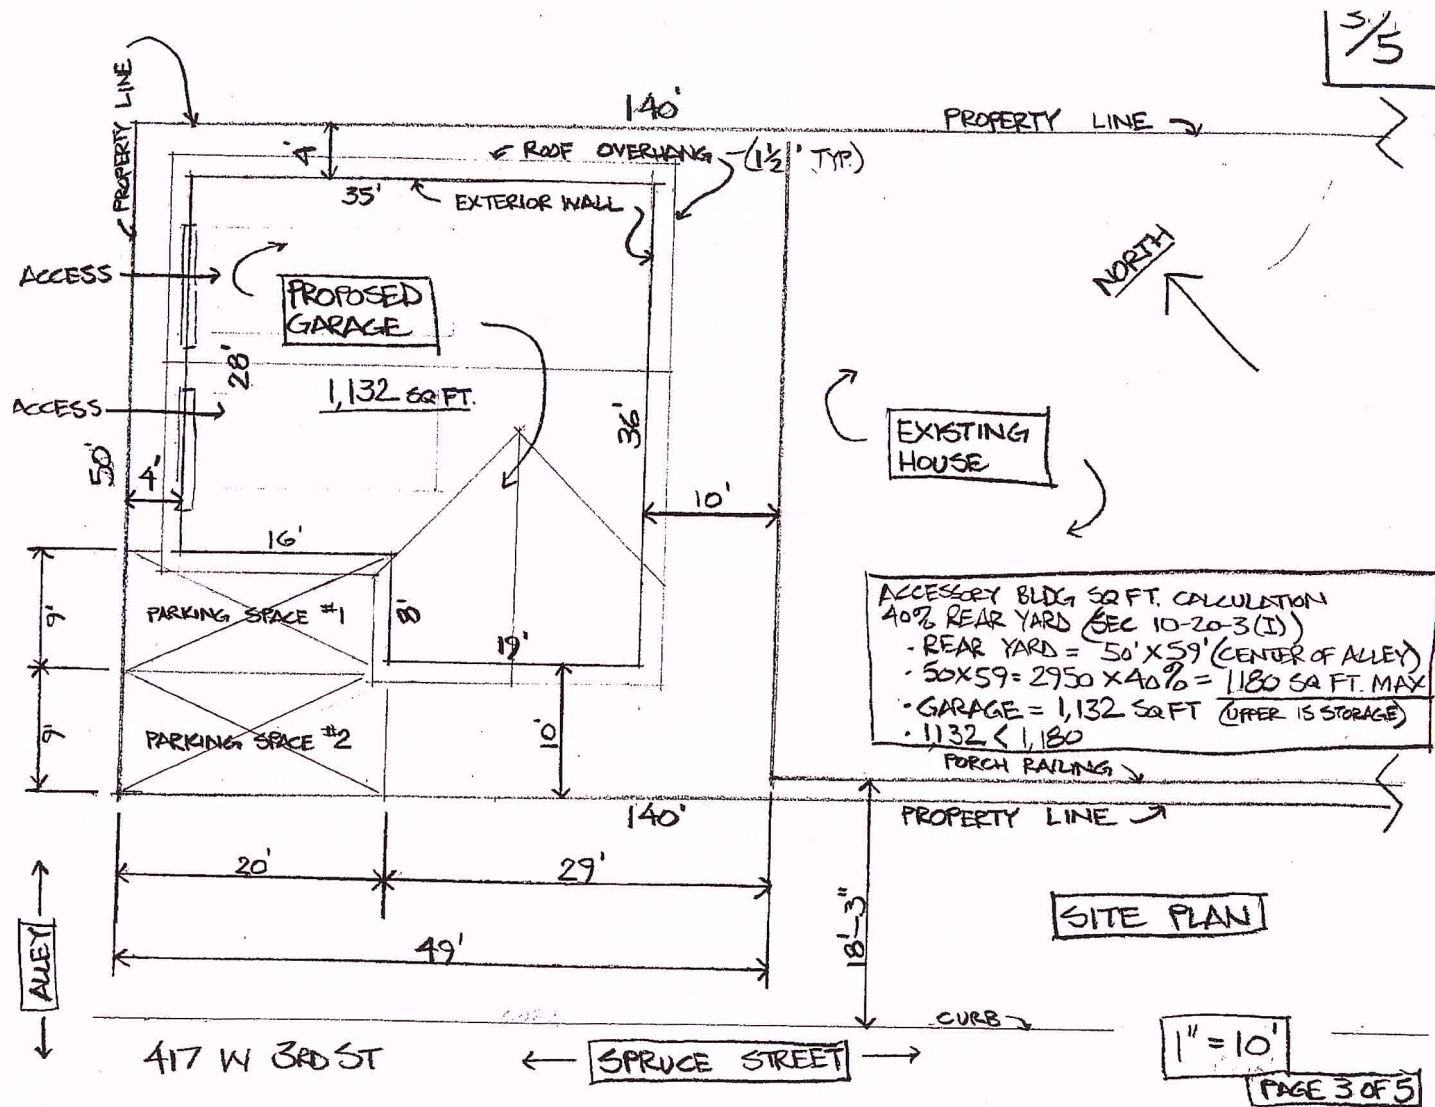 3/5
140'
PROPERTY LINE
PROPERTY LINE
4'
ROOF OVERHANG (1½' TYP.)
35'
EXTERIOR WALL
NORTH
ACCESS
PROPOSED
GARAGE
28'
1,132 SQ FT.
ACCESS
36'
EXISTING
HOUSE
50'
4'
10'
16'
9'
PARKING SPACE #1
8'
19'
9'
PARKING SPACE #2
10'
ACCESSORY BLDG SQ FT. CALCULATION
40% REAR YARD (SEC 10-20-3(I))
· REAR YARD = 50' X 59' (CENTER OF ALLEY)
· 50X59 = 2950 X 40% = 1180 SQ FT. MAX
· GARAGE = 1,132 SQ FT (UPPER IS STORAGE)
· 1132 < 1,180
PORCH RAILING
140'
PROPERTY LINE
20'
29'
18'-3"
SITE PLAN
49'
ALLEY
CURB
417 W 3RD ST
SPRUCE STREET
1" = 10'
PAGE 3 OF 5